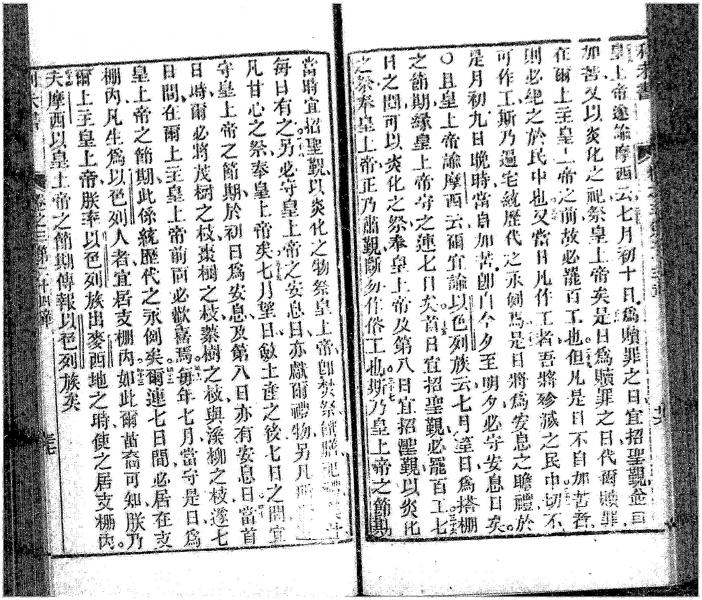 皇上帝遂諭摩西云七月初十日爲贖罪之日宜招聖覲
加苦又以炎化之祀祭皇上帝矣是日爲贖罪之日代爾贖罪
在爾上主皇上帝之前故必罷百工也但凡是日不自加苦者
則必絕之於民中也又當日凡作工者吾將殄滅之民中切不
可作工斯乃遍宅統歷代之永例焉是日將爲安息之瞻禮於
是月初九日晚時當自加苦卽自今夕至明夕必守安息日矣
〇且皇上帝諭摩西云爾宜諭以色列族云七月望日爲搭棚
之節期緣皇上帝守之連七日矣首日宜招聖覲必罷百工七
日之間可以炎化之祭奉皇上帝及第八日宜招聖覲以炎化
之祭奉皇上帝正乃肅覲卽勿作俗工也斯乃皇上帝之節期
當時宜招聖覲以炎化之物祭皇上帝卽焚祭
每日有之另必守皇上帝之安息日亦獻爾禮物另凡
凡甘心之祭奉皇上帝矣七月望日斂土產之後七日之間宜
守皇上帝之節期於初日爲安息及第八日亦有安息日當首
日時爾必將茂樹之枝棗樹之枝蒙樹之枝與溪柳之枝遂七
日間在爾上主皇上帝前而必歡喜焉每年七月當守是日爲
皇上帝之節期此係統歷代之永例矣爾連七日間必居在支
棚內凡生爲以色列人者宜居支棚內如此爾苗裔可知朕乃
爾上主皇上帝朕率以色列族出麥西地之時使之居支棚內
夫摩西以皇上帝之節期傳報以色列族矣